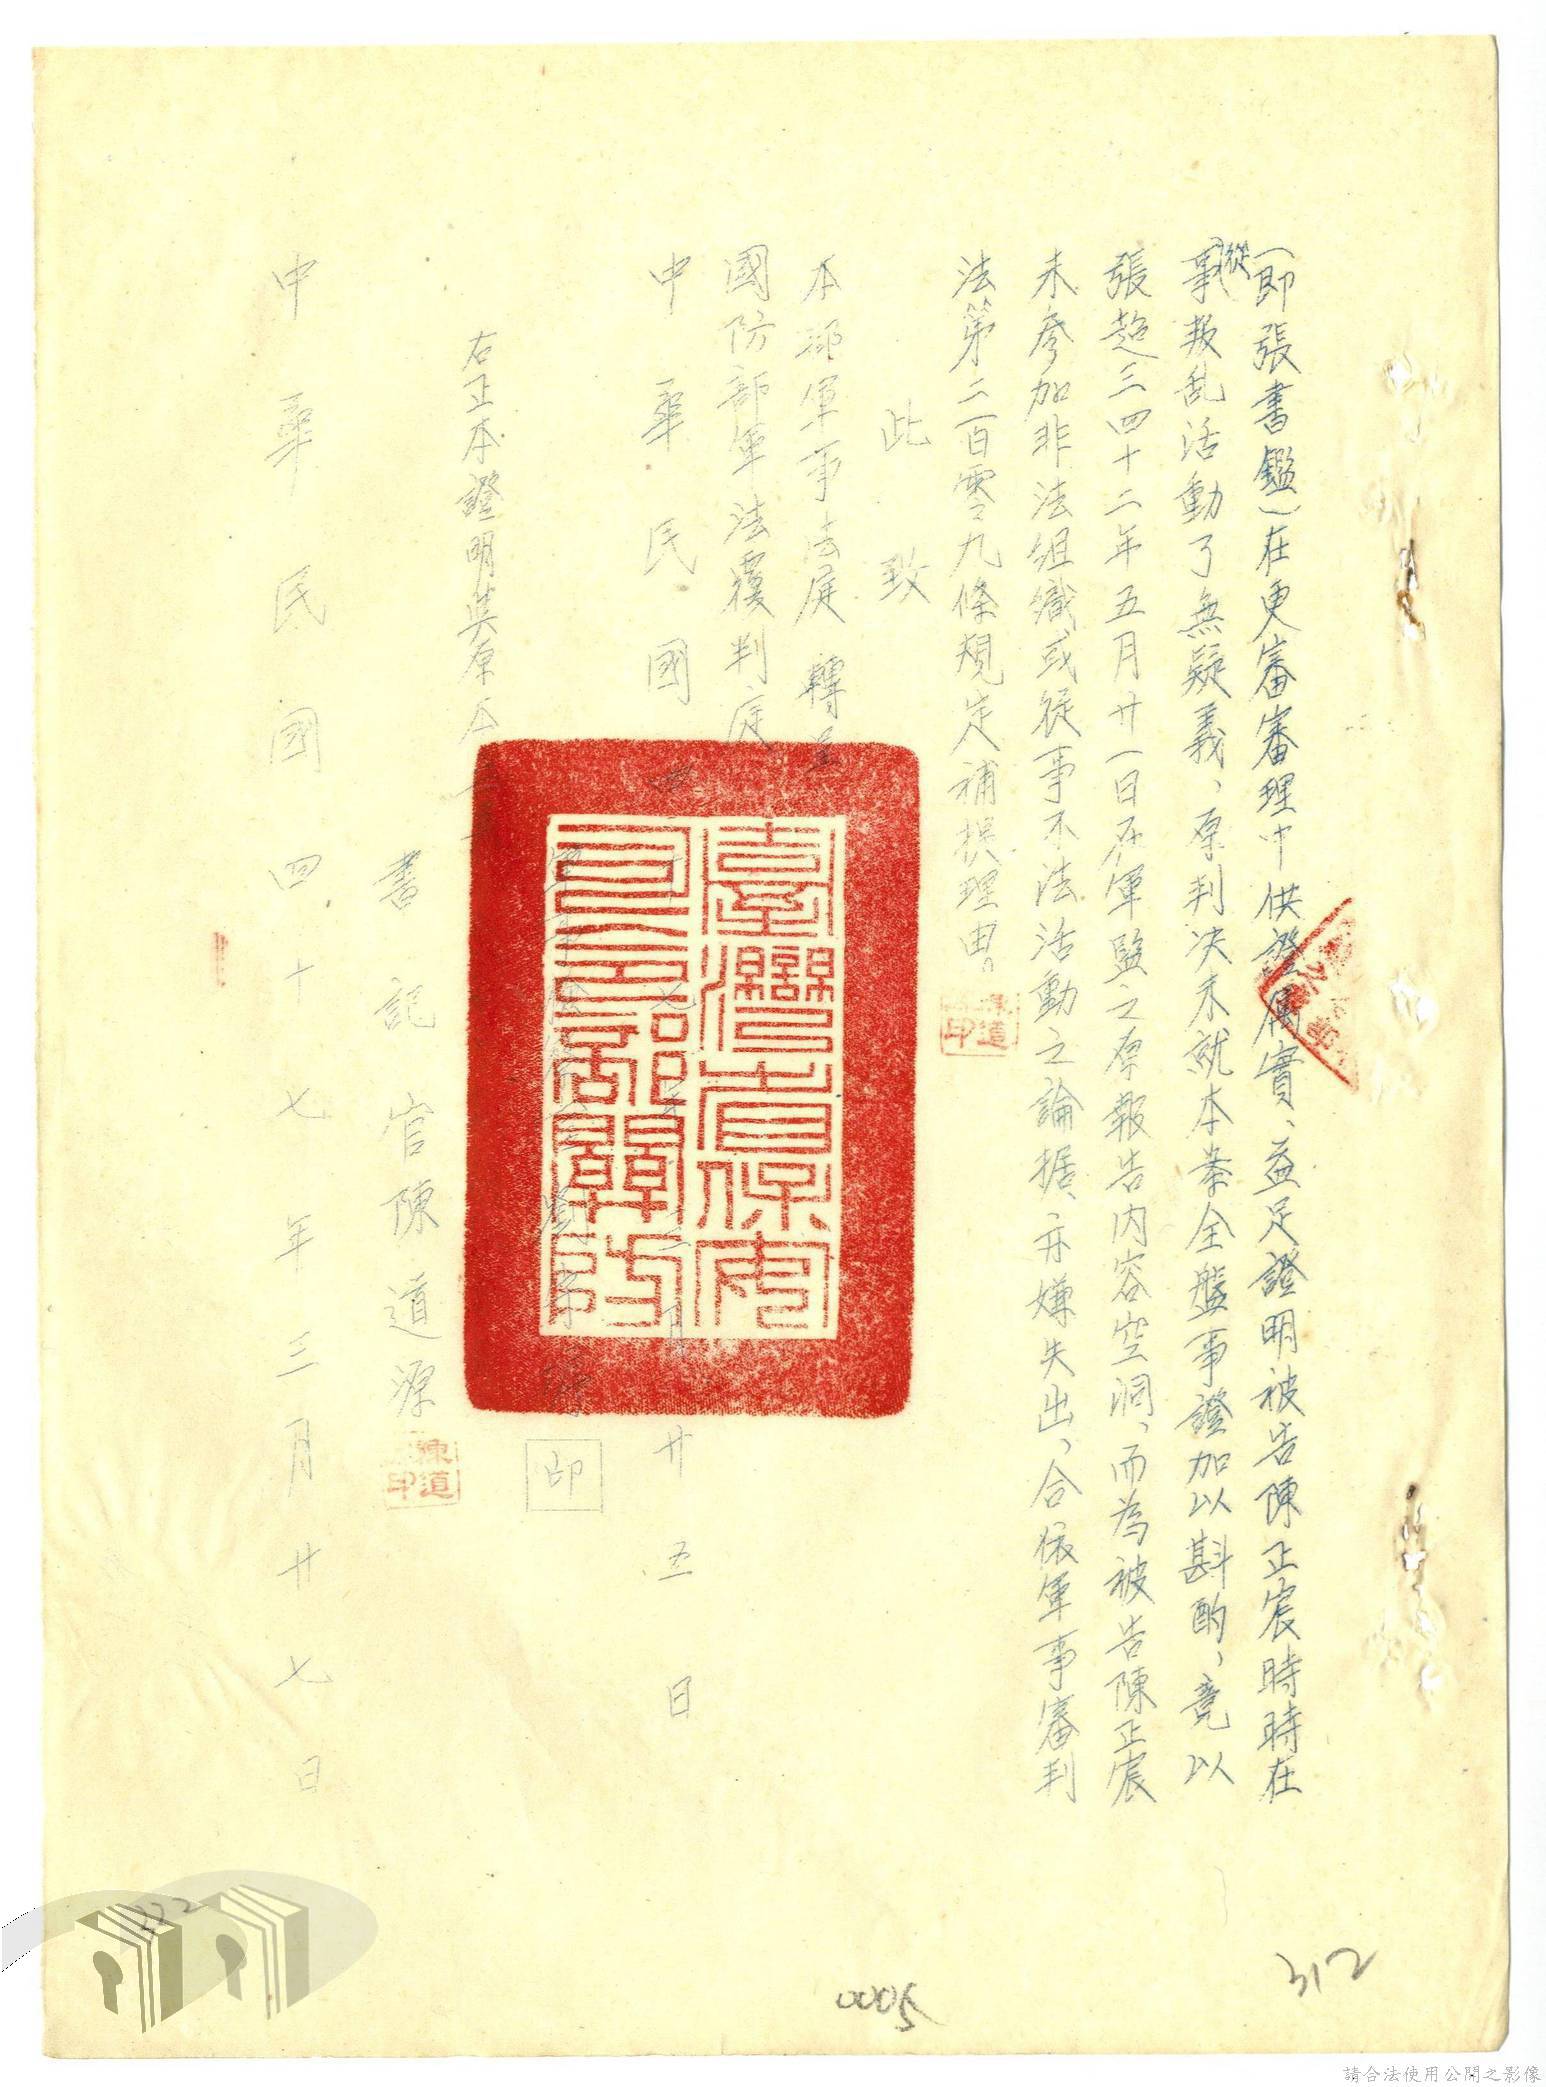 (即張書鑑)在更審審理中供證屬實、益足證明被告陳正宸時時在
從事叛乱活動了無疑義、原判決未就本案全盤事證加以斟酌、竟以
張超三四十二年五月廿一日在軍監之原報告內容空洞、而為被告陳正宸
未參加非法組織或從事不法活動之論据、亦嫌失出、合依軍事審判
法第二百零九條規定補提理由。
陳道印
此致
本部軍事法庭 轉呈
國防部軍法覆判庭
中華民國四十七年三月廿五日
印
右正本證明與原本
書記官陳道源
陳道印
中華民國四十七年三月廿七日
臺灣省保安司令部關防
222
0005
312
請合法使用公開之影像